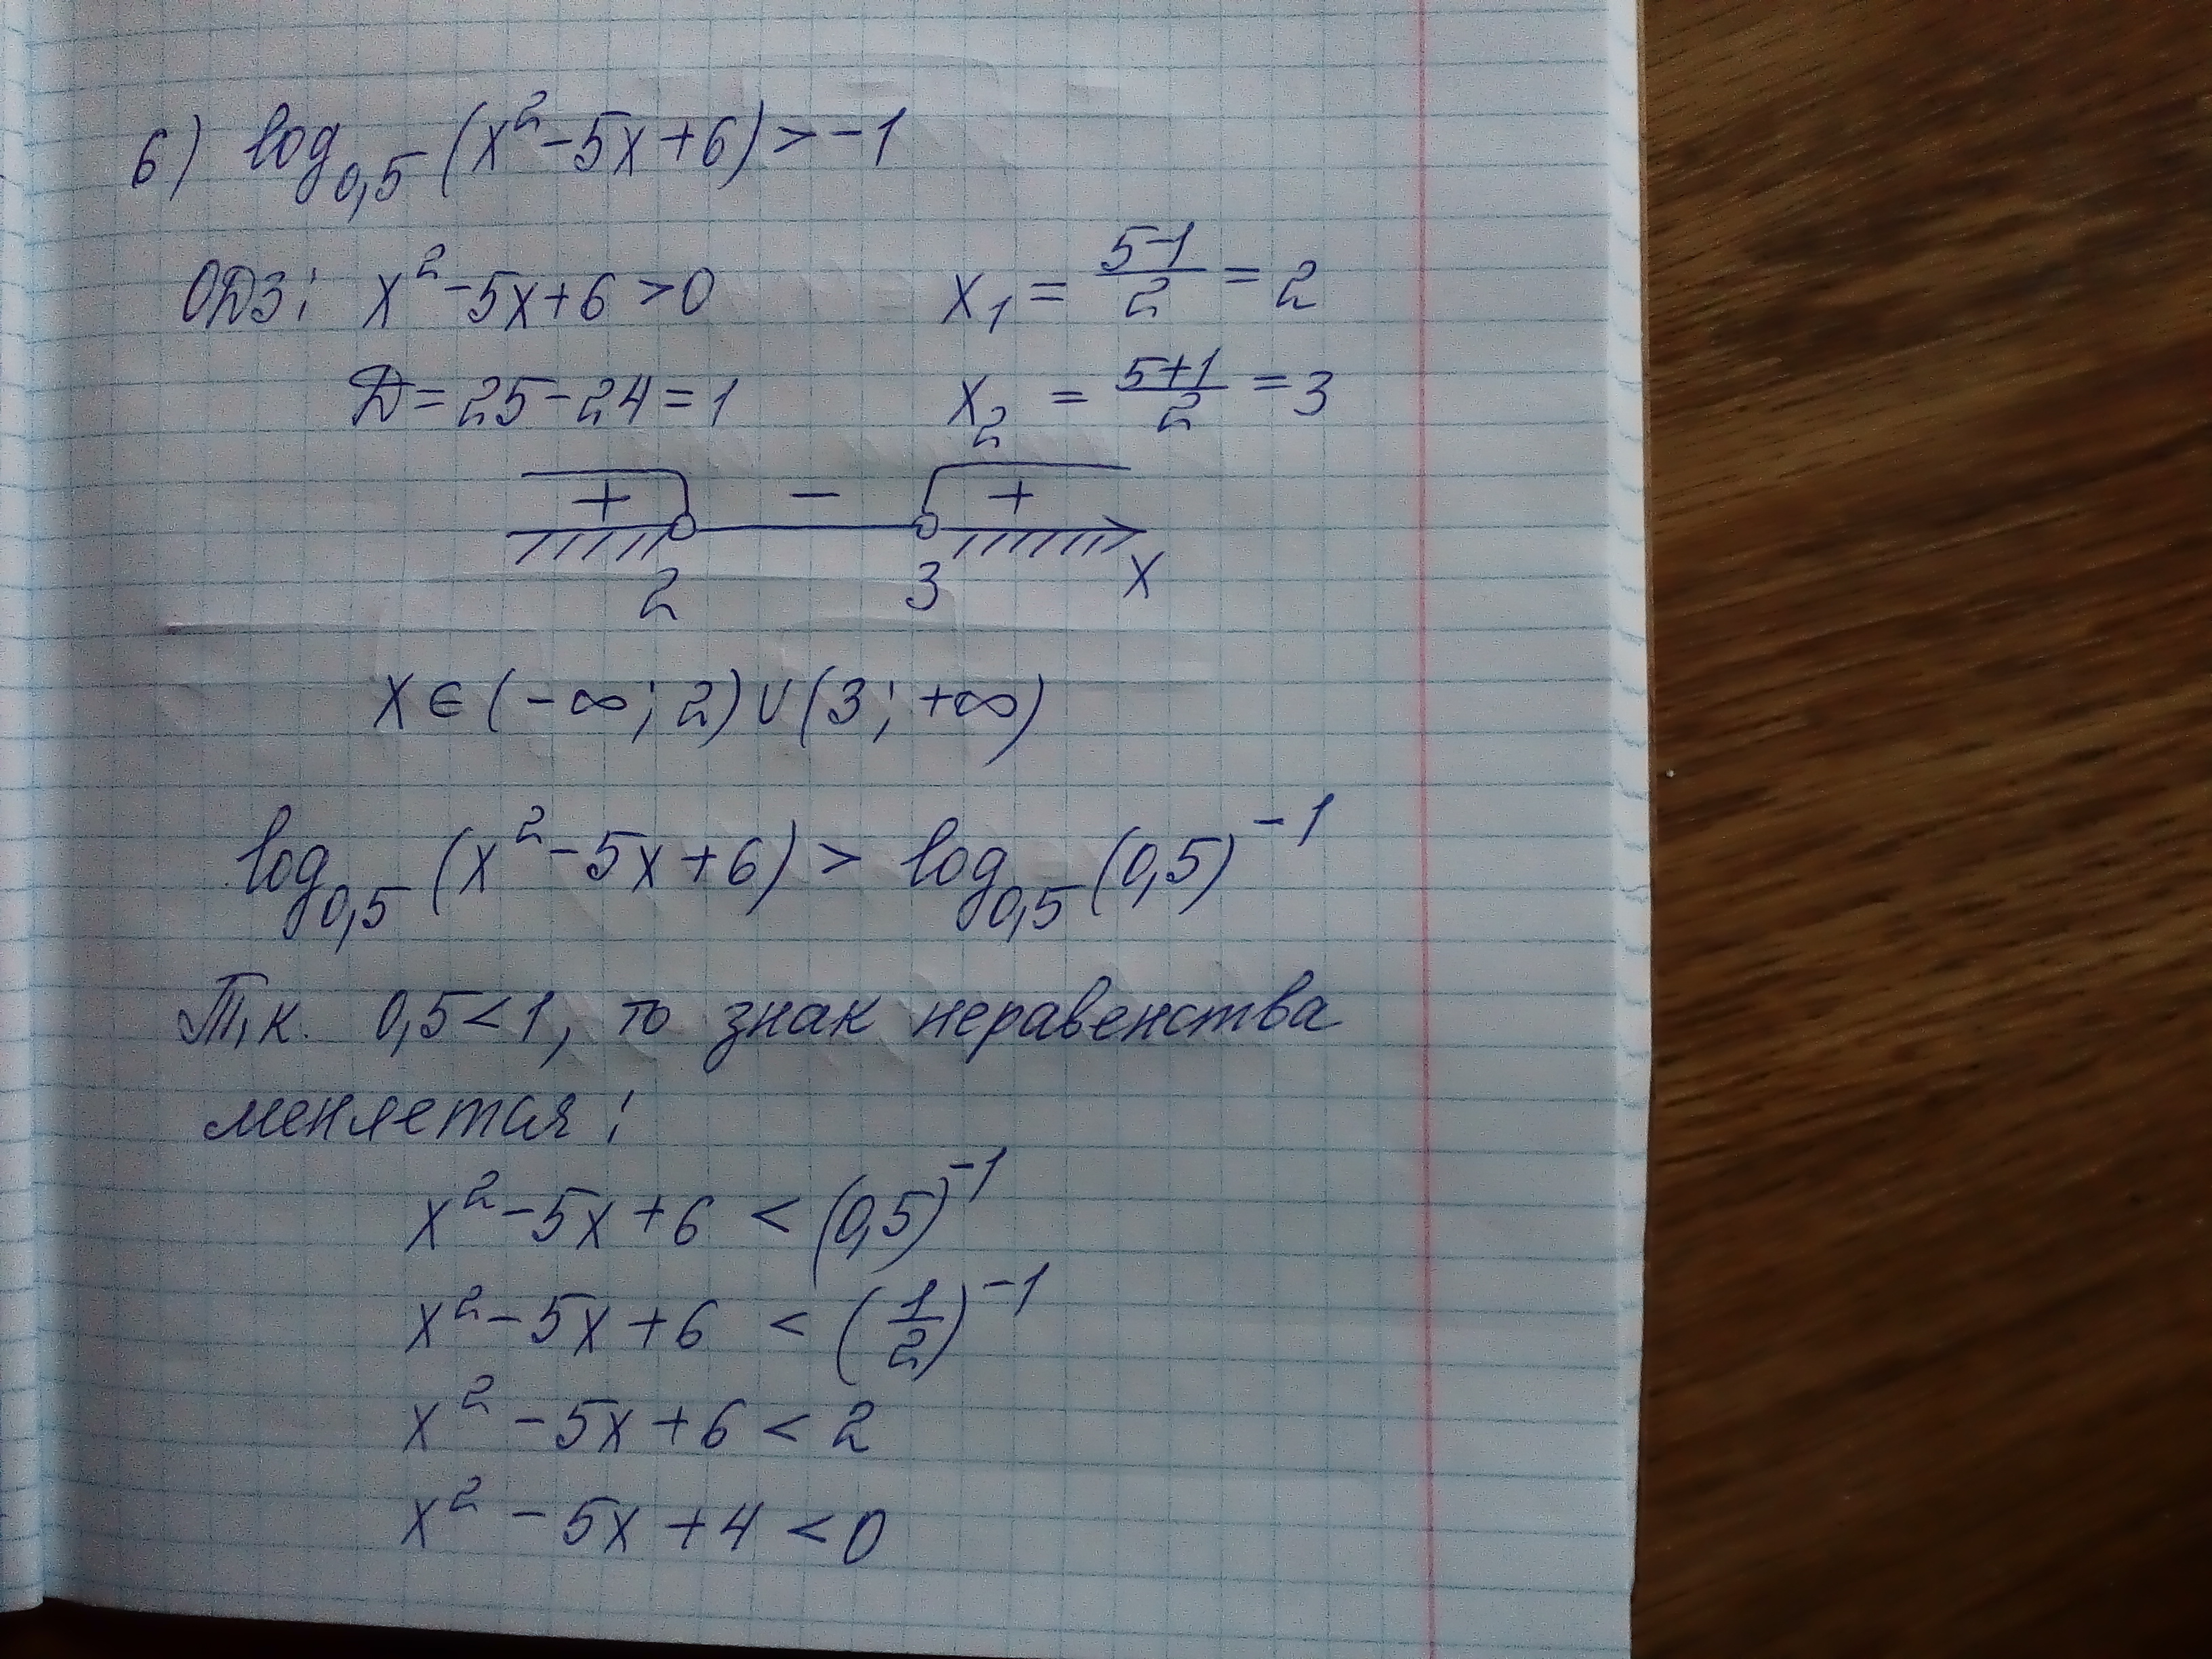 б) log₀,₅ (x² - 5x + 6) > -1
ОДЗ: x² - 5x + 6 > 0 x₁ = (5-1)/2 = 2
D = 25 - 24 = 1 x₂ = (5+1)/2 = 3
+ - +
2 3 x
x ∈ (-∞; 2) ∪ (3; +∞)
log₀,₅ (x² - 5x + 6) > log₀,₅ (0,5)⁻¹
Т.к. 0,5 < 1, то знак неравенства
меняется:
x² - 5x + 6 < (0,5)⁻¹
x² - 5x + 6 < (1/2)⁻¹
x² - 5x + 6 < 2
x² - 5x + 4 < 0